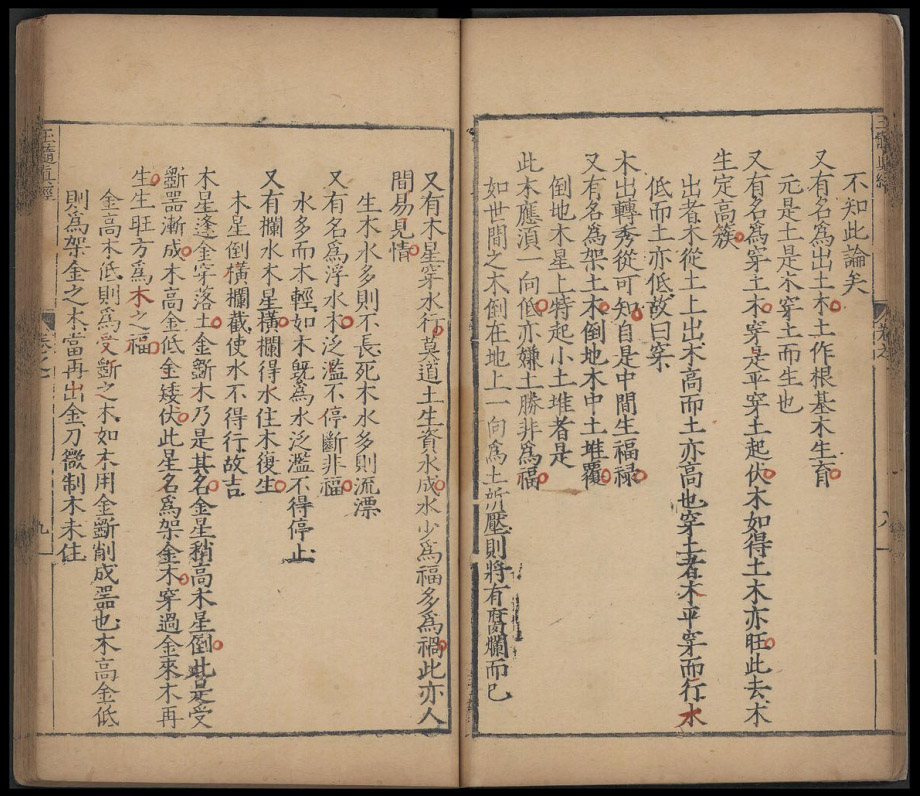 不知此論矣
又有名爲出土木土作根基木生育
元是土是木穿土而生也
又有名爲穿土木穿是平穿土起伏木如得土木亦旺此去木
生定高簇
出者木從土上出木高而土亦高也穿土者木平穿而行木
低而土亦低故曰穿
木出轉秀從可知自是中間生福禄
又有名爲架土木倒地木中土堆覆
倒地木星上特起小土堆者是
此木應須一向低亦嫌土勝非爲福
如世間之木倒在地上一向爲土所壓則將有腐爛而已
又有木星穿水行莫道土生資水成水少爲福多爲禍此亦人
間易見情
生木水多則不長死木水多則流漂
又有名爲浮水木泛濫不停斷非福
水多而木輕如木旣爲水泛濫不得停止
又有攔水木星橫攔得水住木復生
木星倒橫攔截使水不得行故吉
木星逢金穿落土金斷木乃是其名金星稍高木星倒此是受
斷噐漸成木高金低金矮伏此星名爲架金木穿過金來木再
生生旺方爲木之福
金高木低則爲受斷之木如木用金斷削成噐也木高金低
則爲架金之木當再出金刀微制木未住
玉髓真經
卷之
九